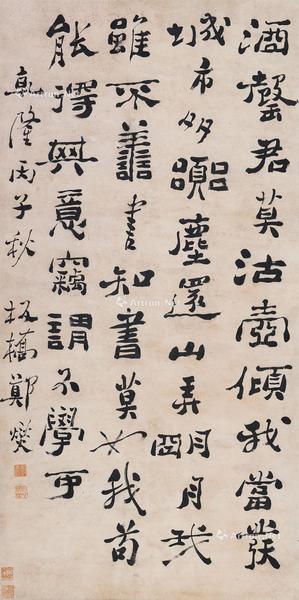 酒罄君莫沽壺傾我當發
城市多囂塵還山弄明月我
雖不善書知書莫如我苟
能得其意竊謂不學可
乾隆丙子秋 板橋鄭燮
Artron.Net